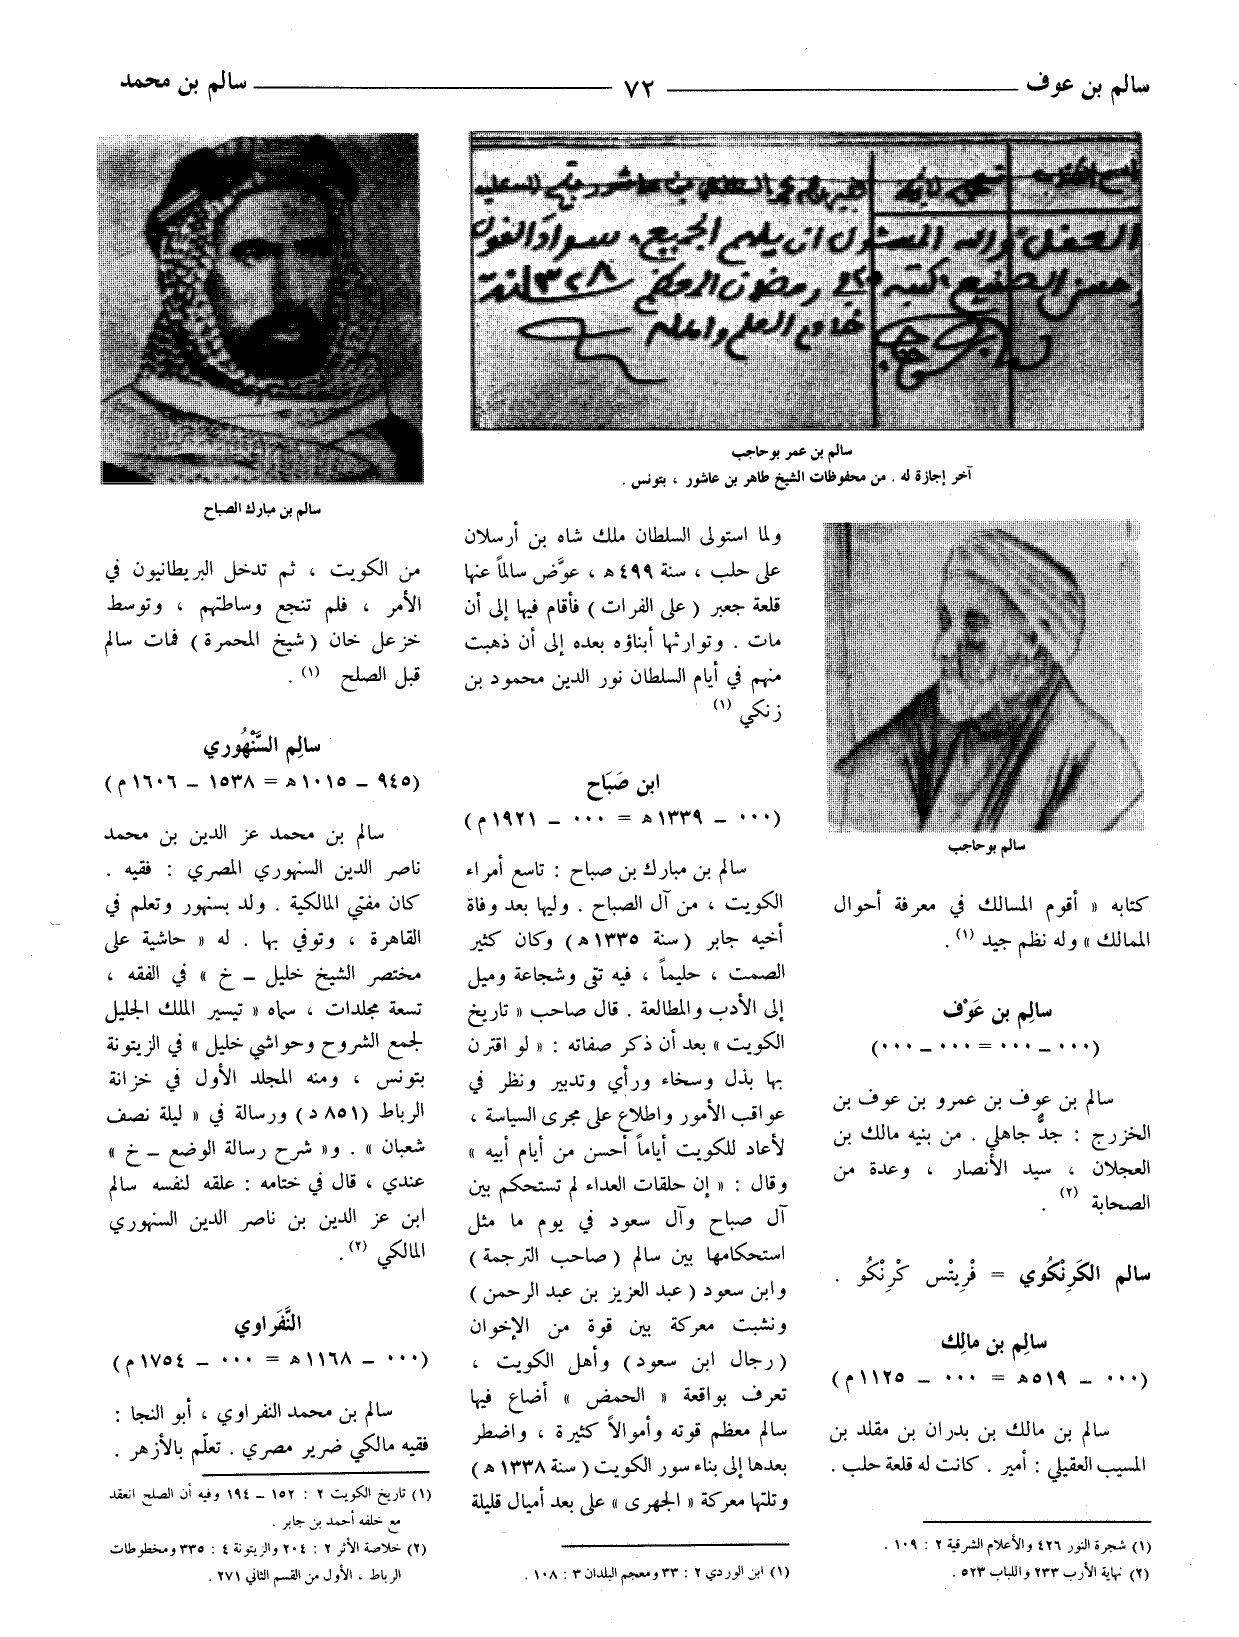 سالم بن عوف ٧٢ سالم بن محمد
سالم بن عمر بوحاجب
آخر إجازة له . من محفوظات الشيخ طاهر بن عاشور ، بتونس .
سالم بوحاجب
كتابه « أقوم المسالك في معرفة أحوال
الممالك » وله نظم جيد (١) .
سالِم بن عَوْف
(٠٠٠ــ٠٠٠ = ٠٠٠ــ٠٠٠)
سالم بن عوف بن عمرو بن عوف بن
الخزرج : جدٌّ جاهلي . من بنيه مالك بن
العجلان ، سيد الأنصار ، وعدة من
الصحابة (٢) .
سالم الكَرِنْكَوي = فْرِيتْس كْرِنْكُو .
سالِم بن مالِك
(٠٠٠ ــ ٥١٩ﻫ = ٠٠٠ ــ ١١٢٥م)
سالم بن مالك بن بدران بن مقلد بن
المسيب العقيلي : أمير . كانت له قلعة حلب .
(١) شجرة النور ٤٢٦ والأعلام الشرقية ٢ : ١٠٩ .
(٢) نهاية الأرب ٢٣٣ واللباب ٥٢٣ .
ولما استولى السلطان ملك شاه بن أرسلان
على حلب ، سنة ٤٩٩ﻫ ، عوَّض سالماً عنها
قلعة جعبر ( على الفرات ) فأقام فيها إلى أن
مات . وتوارثها أبناؤه بعده إلى أن ذهبت
منهم في أيام السلطان نور الدين محمود بن
زنكي (١)
ابن صَبَاح
(٠٠٠ ــ ١٣٣٩ﻫ = ٠٠٠ ــ ١٩٢١م)
سالم بن مبارك بن صباح : تاسع أمراء
الكويت ، من آل الصباح . وليها بعد وفاة
أخيه جابر ( سنة ١٣٣٥ﻫ ) وكان كثير
الصمت ، حليماً ، فيه تقى وشجاعة وميل
إلى الأدب والمطالعة . قال صاحب « تاريخ
الكويت » بعد أن ذكر صفاته : « لو اقترن
بها بذل وسخاء ورأي وتدبير ونظر في
عواقب الأمور واطلاع على مجرى السياسة ،
لأعاد للكويت أياماً أحسن من أيام أبيه »
وقال : « إن حلقات العداء لم تستحكم بين
آل صباح وآل سعود في يوم ما مثل
استحكامها بين سالم ( صاحب الترجمة )
وابن سعود ( عبد العزيز بن عبد الرحمن )
ونشبت معركة بين قوة من الإخوان
( رجال ابن سعود ) وأهل الكويت ،
تعرف بواقعة « الحمض » أضاع فيها
سالم معظم قوته وأموالاً كثيرة ، واضطر
بعدها إلى بناء سور الكويت ( سنة ١٣٣٨ﻫ )
وتلتها معركة « الجهرى » على بعد أميال قليلة
(١) ابن الوردي ٢ : ٣٣ ومعجم البلدان ٣ : ١٠٨ .
سالم بن مبارك الصباح
من الكويت ، ثم تدخل البريطانيون في
الأمر ، فلم تنجع وساطتهم ، وتوسط
خزعل خان ( شيخ المحمرة ) فمات سالم
قبل الصلح (١) .
سالِم السَّنْهُوري
(٩٤٥ ــ ١٠١٥ﻫ = ١٥٣٨ ــ ١٦٠٦م)
سالم بن محمد عز الدين بن محمد
ناصر الدين السنهوري المصري : فقيه .
كان مفتي المالكية . ولد بسنهور وتعلم في
القاهرة ، وتوفي بها . له « حاشية على
مختصر الشيخ خليل ــ خ » في الفقه ،
تسعة مجلدات ، سماه « تيسير الملك الجليل
لجمع الشروح وحواشي خليل » في الزيتونة
بتونس ، ومنه المجلد الأول في خزانة
الرباط (٨٥١ د) ورسالة في « ليلة نصف
شعبان » . و« شرح رسالة الوضع ــ خ »
عندي ، قال في ختامه : علقه لنفسه سالم
ابن عز الدين بن ناصر الدين السنهوري
المالكي (٢) .
النَّفَراوي
(٠٠٠ ــ ١١٦٨ﻫ = ٠٠٠ ــ ١٧٥٤م)
سالم بن محمد النفراوي ، أبو النجا :
فقيه مالكي ضرير مصري . تعلّم بالأزهر .
(١) تاريخ الكويت ٢ : ١٥٢ ــ ١٩٤ وفيه أن الصلح انعقد
مع خلفه أحمد بن جابر .
(٢) خلاصة الأثر ٢ : ٢٠٤ والزيتونة ٤ : ٣٣٥ ومخطوطات
الرباط ، الأول من القسم الثاني ٢٧١ .